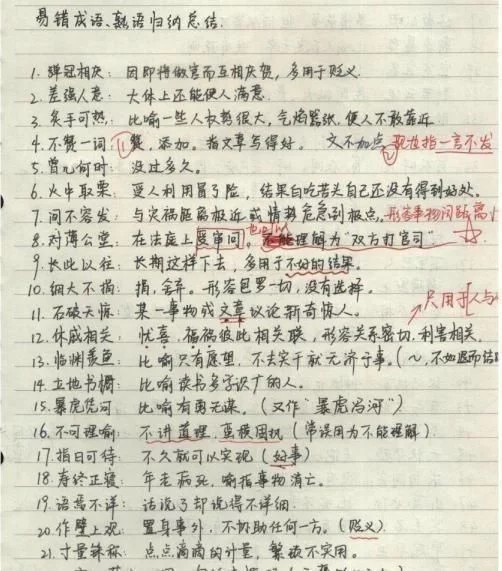 易错成语、熟语归纳总结.
1. 弹冠相庆: 因即将做官而互相庆贺, 多用于贬义.
2. 差强人意: 大体上还能使人满意.
3. 炙手可热: 比喻一些人权势很大, 气焰嚣张, 使人不敢靠近
4. 不赞一词: ①赞, 添加. 指文章写得好. 文不加点 ②现在指一言不发
5. 曾几何时: 没过多久.
6. 火中取栗: 受人利用冒了险, 结果白吃苦头自己还没有得到好处.
7. 间不容发: 与灾祸距离极近或情势危急到极点. 形容事物间距离
也可以
8. 对薄公堂: 在法庭上受审问. 不能理解为“双方打官司”
9. 长此以往: 长期这样下去, 多用于不好的结果.
10. 细大不捐: 捐, 弃. 形容包罗一切, 没有选择.
只用于人与
11. 石破天惊: 某一事物或文章议论新奇惊人.
12. 休戚相关: 忧喜, 福祸彼此相关联, 形容关系密切, 利害相关.
13. 临渊羡鱼: 比喻只有愿望, 不去实干就无济于事. (~, 不如退而结
14. 立地书橱: 比喻读书多学识广的人.
15. 暴虎凭河: 比喻有勇无谋. (又作“暴虎冯河”)
16. 不可理喻: 不讲道理, 蛮横固执 (常误用为不能理解).
17. 指日可待: 不久就可以实现 (好事)
18. 寿终正寝: 年老病死, 喻指事物消亡.
19. 语焉不详: 话说了却说得不详细.
20. 作壁上观: 置身事外, 不帮助任何一方. (贬义)
21. 寸量铢称: 点点滴滴的计量, 繁琐不实用.